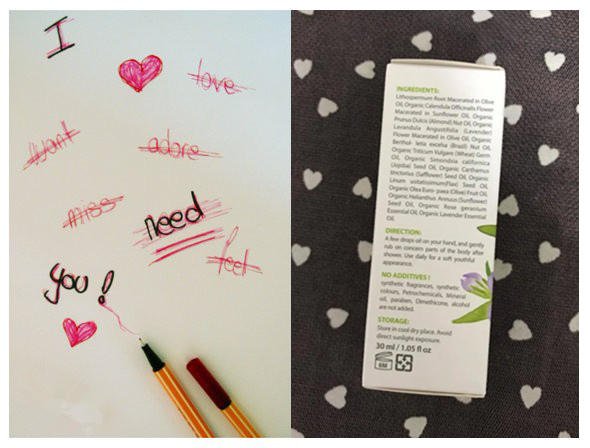 I
love
want
adore
miss
need
feel
you!
INGREDIENTS:
Lithospermum Root Macerated in Olive
Oil, Organic Calendula Officinalis Flower
Macerated in Sunflower Oil, Organic
Prunus Dulcis (Almond) Nut Oil, Organic
Lavandula Angustifolia (Lavender)
Flower Macerated in Olive Oil, Organic
Berthol- letia excelsa (Brazil) Nut Oil,
Organic Triticum Vulgare (Wheat) Germ
Oil, Organic Simondsia californica
(Jojoba) Seed Oil, Organic Carthamus
tinctorius (Safflower) Seed Oil, Organic
Linum usitatissimum(Flax) Seed Oil,
Organic Olea Euro- paea (Olive) Fruit Oil,
Organic Helianthus Annuus (Sunflower)
Seed Oil, Organic Rose geranium
Essential Oil, Organic Lavender Essential
Oil.
DIRECTION:
A few drops oil on your hand, and gently
rub on concern parts of the body after
shower. Use daily for a soft youthful
appearance.
NO ADDITIVES !
synthetic fragrances, synthetic
colours, Petrochemicals, Mineral
oil, paraben, Dimethicone, alcohol
are not added.
STORAGE:
Store in cool dry place. Avoid
direct sunlight exposure.
30 ml / 1.05 fl oz
6M